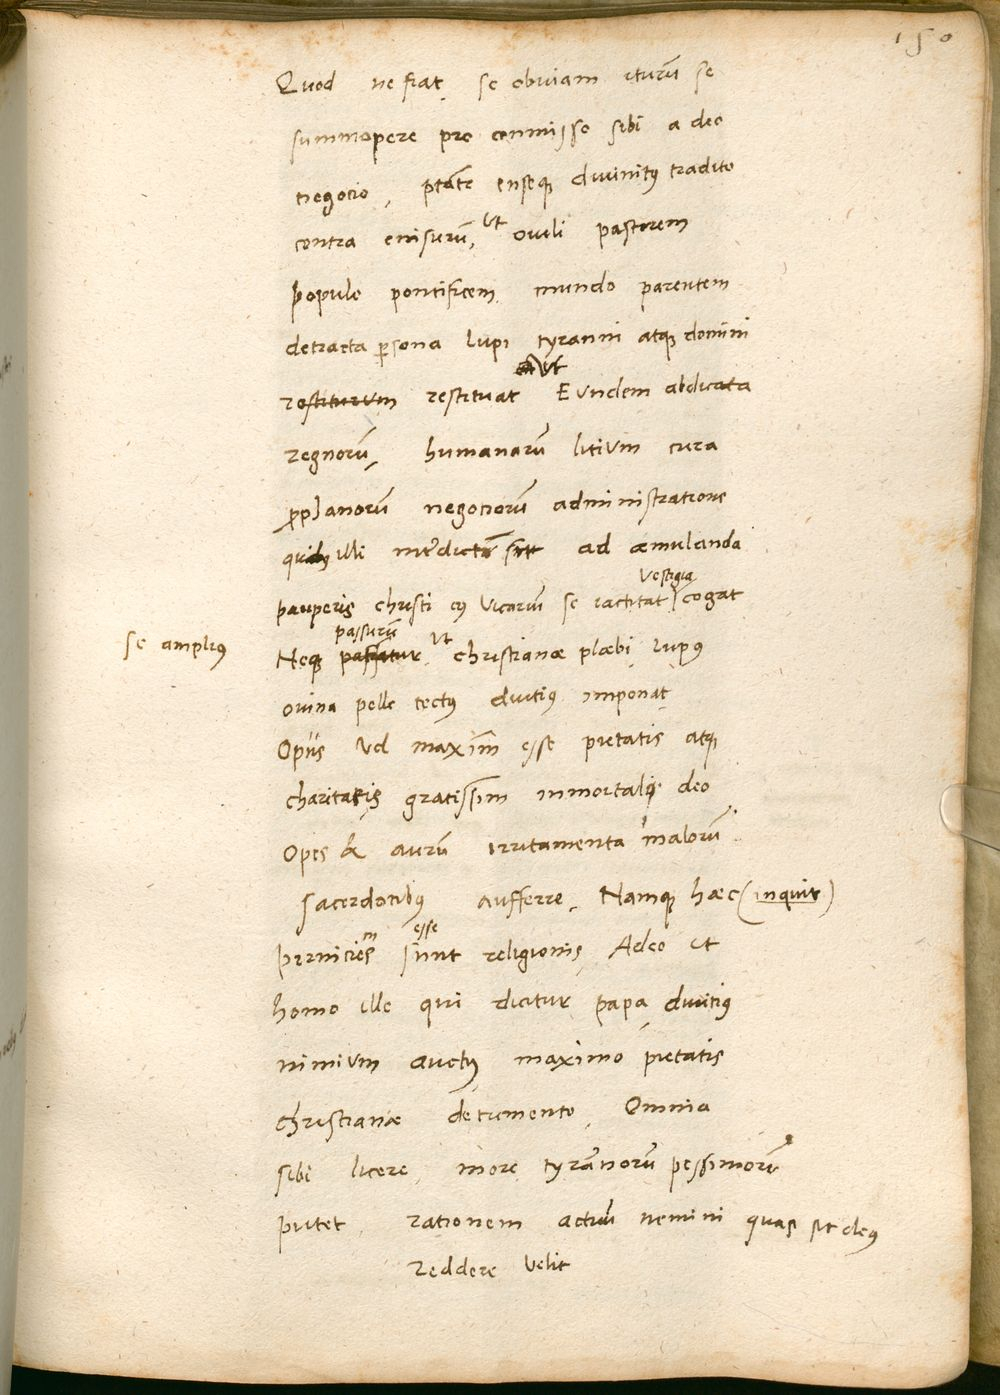 150
Quod ne fiat se obviam iturū se
summopere pro commisso sibi a deo
negocio, ptāte enseq divinitꝰ tradito
contra enisurū, ut ovili pastorem
populo pontificem mundo parentem
detracta psona lupi tyranni atq domini
restiturum restituat ut Eundem abdicata
regnorū, humanarū litium cura
pphanorū negociorū administratione
quibꝰ illi interdictū sit ad æmulanda
pauperis christi cꝰ vicariū se iactitat vestigia cogat
se ampliꝰ
Neq patiatur passurū ut christianæ plæbi lupꝰ
ovina pelle tectꝰ diutiꝰ imponat
Opus vel maxim̄ esse pietatis atq
charitatis gratissim immortali deo
Opes & aurū irritamenta malorū
sacerdotibꝰ aufferre, Namq hæc (inquit)
perniciem sunt esse religionis, Adeo ut
homo ille qui dicitur papa divitiis
nimium auctꝰ maximo pietatis
christianæ detrimento, Omnia
sibi licere more tyrānorū pessimorū
putet, rationem actuū nemini quasi sit deꝰ
reddere velit